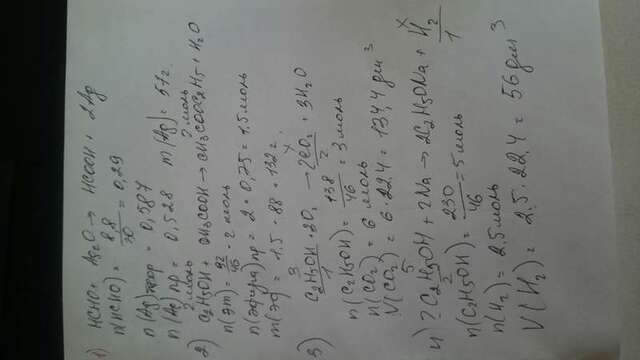 1) HCHO + Ag2O → HCOOH + 2Ag
n(HCHO) = 8.8/30 = 0,29
n(Ag)теор = 0,587
n(Ag)пр = 0,528 m(Ag) = 57г.
2моль 2моль
2) C2H5OH + CH3COOH → CH3COOC2H5 + H2O
n(эт) = 92/46 = 2 моль
n(эфира)пр = 2 · 0,75 = 1.5 моль
m(эф) = 1.5 · 88 = 132 г.
3 x
3) C2H5OH + 3O2 → 2CO2 + 3H2O
1 2
n(C2H5OH) = 138/46 = 3 моль
n(CO2) = 6 моль
V(CO2) = 6 · 22.4 = 134,4 дм3
5 x
4) 2C2H5OH + 2Na → 2C2H5ONa + H2
2 1
n(C2H5OH) = 230/46 = 5 моль
n(H2) = 2.5 моль
V(H2) = 2.5 · 22.4 = 56 дм3